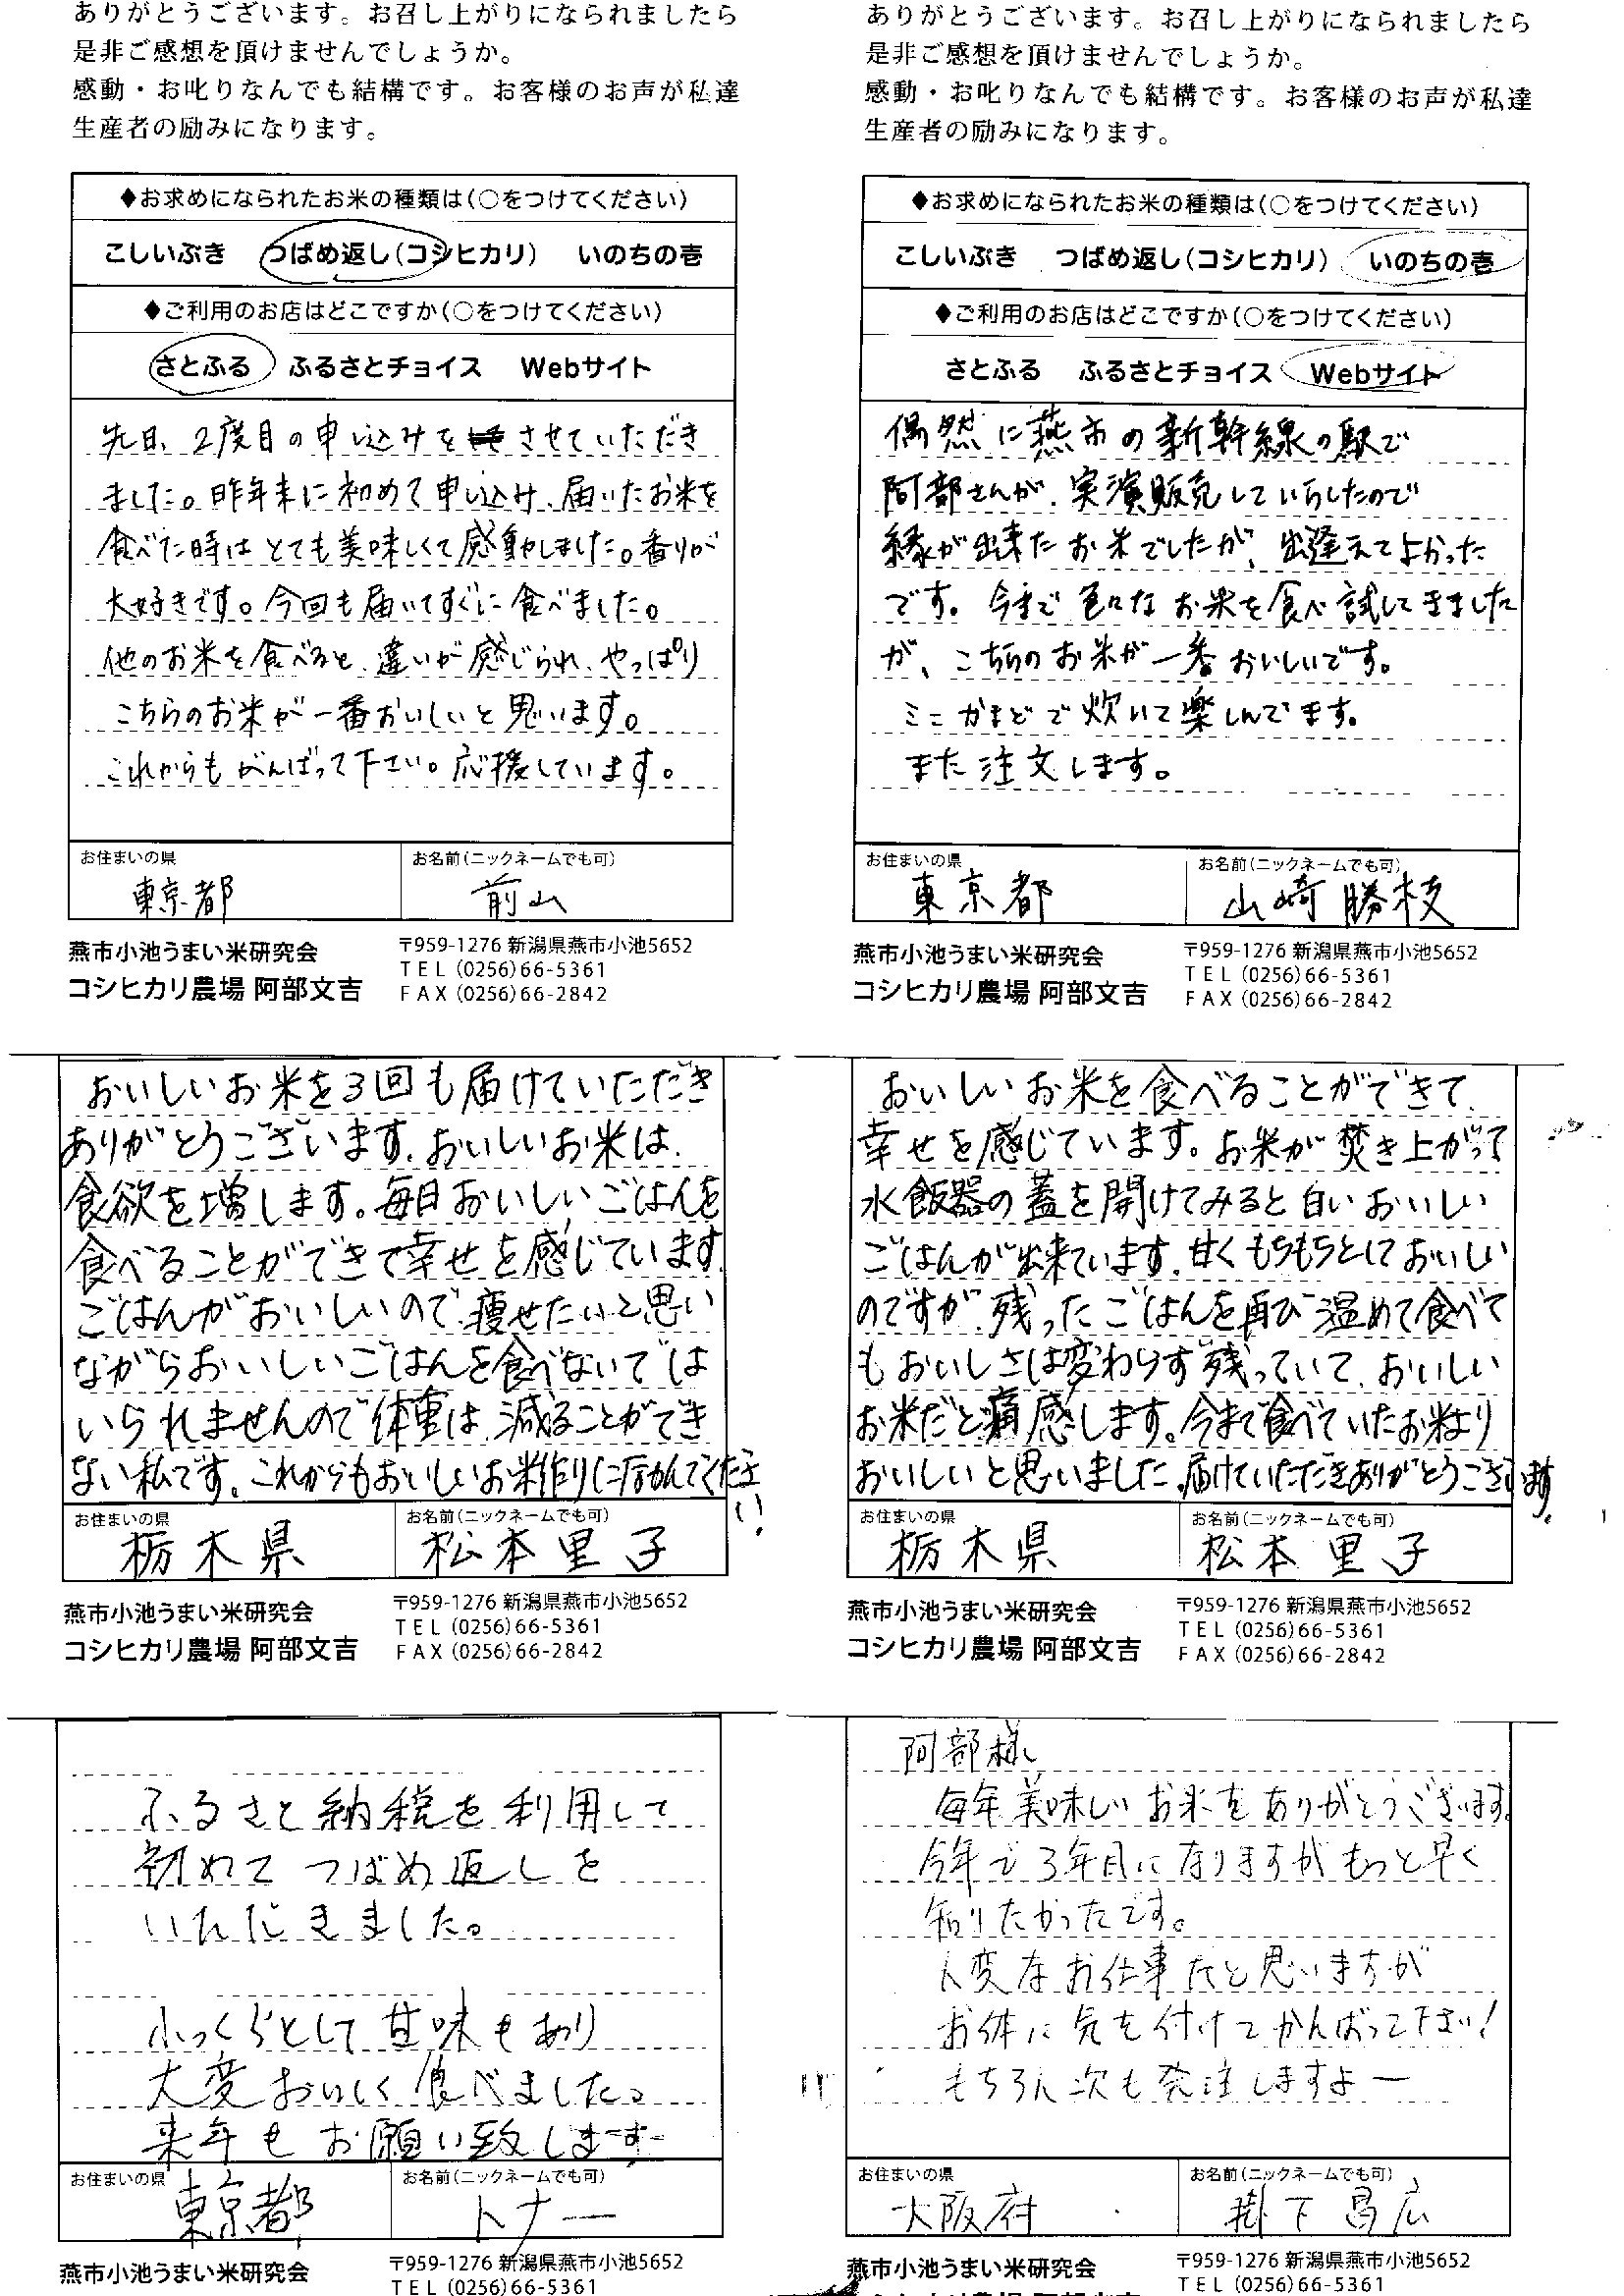 ありがとうございます。お召し上がりになられましたら
是非ご感想を頂けませんでしょうか。
感動・お叱りなんでも結構です。お客様のお声が私達
生産者の励みになります。
◆お求めになられたお米の種類は(○をつけてください)
こしいぶき つばめ返し(コシヒカリ) いのちの壱
◆ご利用のお店はどこですか(○をつけてください)
さとふる ふるさとチョイス Webサイト
先日、2度目の申し込みをさせていただき
ました。昨年末に初めて申し込み、届いたお米を
食べた時はとても美味しくて感動しました。香りが
大好きです。今回も届いてすぐに食べました。
他のお米を食べると、違いが感じられ、やっぱり
こちらのお米が一番おいしいと思います。
これからもがんばって下さい。応援しています。
お住まいの県 お名前(ニックネームでも可)
東京都 前山
燕市小池うまい米研究会
コシヒカリ農場 阿部文吉
〒959-1276 新潟県燕市小池5652
TEL (0256)66-5361
FAX (0256)66-2842
ありがとうございます。お召し上がりになられましたら
是非ご感想を頂けませんでしょうか。
感動・お叱りなんでも結構です。お客様のお声が私達
生産者の励みになります。
◆お求めになられたお米の種類は(○をつけてください)
こしいぶき つばめ返し(コシヒカリ) いのちの壱
◆ご利用のお店はどこですか(○をつけてください)
さとふる ふるさとチョイス Webサイト
偶然に燕市の新幹線の駅で
阿部さんが、実演販売していらしたので
縁が出来たお米でしたが、出逢えてよかった
です。今まで色々なお米を食べ試してきました
が、こちらのお米が一番おいしいです。
ミニかまどで炊いて楽しんでます。
また注文します。
お住まいの県 お名前(ニックネームでも可)
東京都 山崎勝枝
燕市小池うまい米研究会
コシヒカリ農場 阿部文吉
〒959-1276 新潟県燕市小池5652
TEL (0256)66-5361
FAX (0256)66-2842
おいしいお米を3回も届けていただき
ありがとうございます。おいしいお米は、
食欲を増します。毎日おいしいごはんを
食べることができて幸せを感じています。
ごはんがおいしいので、痩せたいと思い
ながらおいしいごはんを食べないでは
いられませんので体重は、減ることができ
ない私です。これからもおいしいお米作りに励んでくださ
い!
お住まいの県 お名前(ニックネームでも可)
栃木県 松本里子
燕市小池うまい米研究会
コシヒカリ農場 阿部文吉
〒959-1276 新潟県燕市小池5652
TEL (0256)66-5361
FAX (0256)66-2842
おいしいお米を食べることができて、
幸せを感じています。お米が焚き上がって
水飯器の蓋を開けてみると白いおいしい
ごはんが出来ています。甘くもちもちとしておいしい
のですが、残ったごはんを再び温めて食べて
もおいしさは変わらず残っていて、おいしい
お米だと痛感します。今まで食べていたお米より
おいしいと思いました。届けていただきありがとうござい
ます。
お住まいの県 お名前(ニックネームでも可)
栃木県 松本里子
燕市小池うまい米研究会
コシヒカリ農場 阿部文吉
〒959-1276 新潟県燕市小池5652
TEL (0256)66-5361
FAX (0256)66-2842
ふるさと納税を利用して
初めてつばめ返しを
いただきました。
ふっくらとして甘味もあり
大変おいしく食べました。
来年もお願い致します
お住まいの県 お名前(ニックネームでも可)
東京都 トナー
燕市小池うまい米研究会
〒959-1276 新潟県燕市小池5652
TEL (0256)66-5361
阿部様
毎年美味しいお米をありがとうございます。
今年で3年目になりますがもっと早く
知りたかったです。
大変なお仕事だと思いますが
お体に気を付けてがんばって下さい!
もちろん次も発注しますよー
お住まいの県 お名前(ニックネームでも可)
大阪府 掛下昌広
燕市小池うまい米研究会
〒959-1276 新潟県燕市小池5652
TEL (0256)66-5361